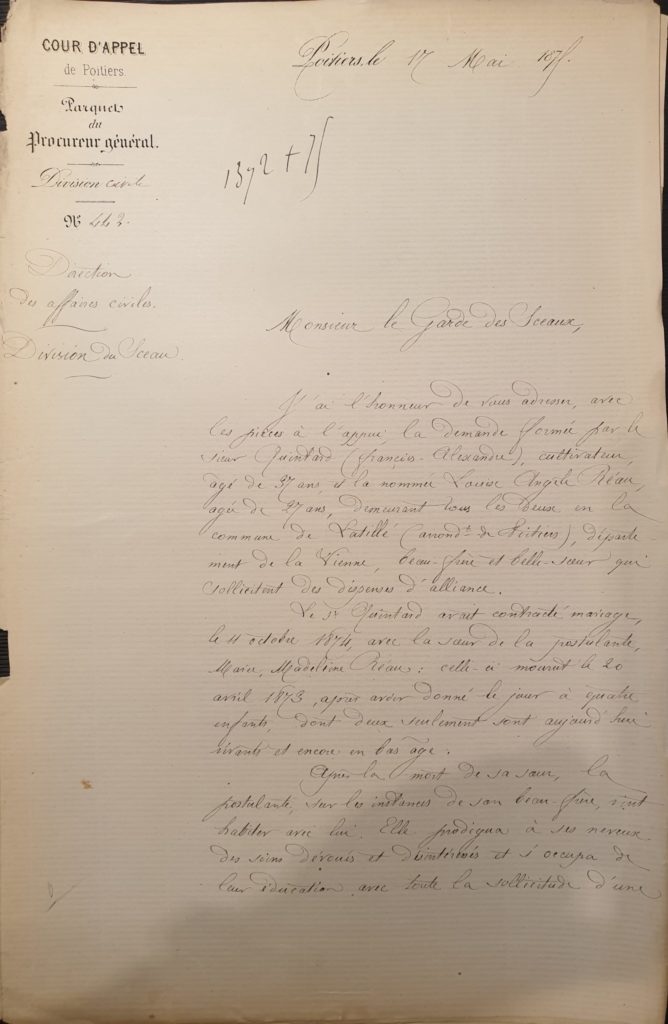 COUR D'APPEL
de Poitiers.
Parquet
du
Procureur général.
Division civile
N° 443.
Direction
des affaires civiles.
Division du Sceau.
Poitiers, le 17 Mai 1875.
1372 + 75
Monsieur le Garde des Sceaux,
J'ai l'honneur de vous adresser, avec
les pièces à l'appui, la demande formée par le
sieur Quintard (François-Alexandre), cultivateur,
âgé de 37 ans, et la nommée Louise Angèle Réau,
âgée de 27 ans, demeurant tous les deux en la
commune de Latillé (arrondt de Poitiers), départe-
ment de la Vienne, beau-frère et belle-sœur qui
sollicitent des dispenses d'alliance.
Le sr Quintard avait contracté mariage,
le 11 octobre 1874, avec la sœur de la postulante,
Marie, Madeleine Réau : celle-ci mourut le 20
avril 1873, après avoir donné le jour à quatre
enfants, dont deux seulement sont aujourd'hui
vivants et encore en bas âge.
Après la mort de sa sœur, la
postulante, sur les instances de son beau-frère, vint
habiter avec lui. Elle prodigua à ses neveux
des soins dévoués et désintéressés et s'occupa de
leur éducation avec toute la sollicitude d'une